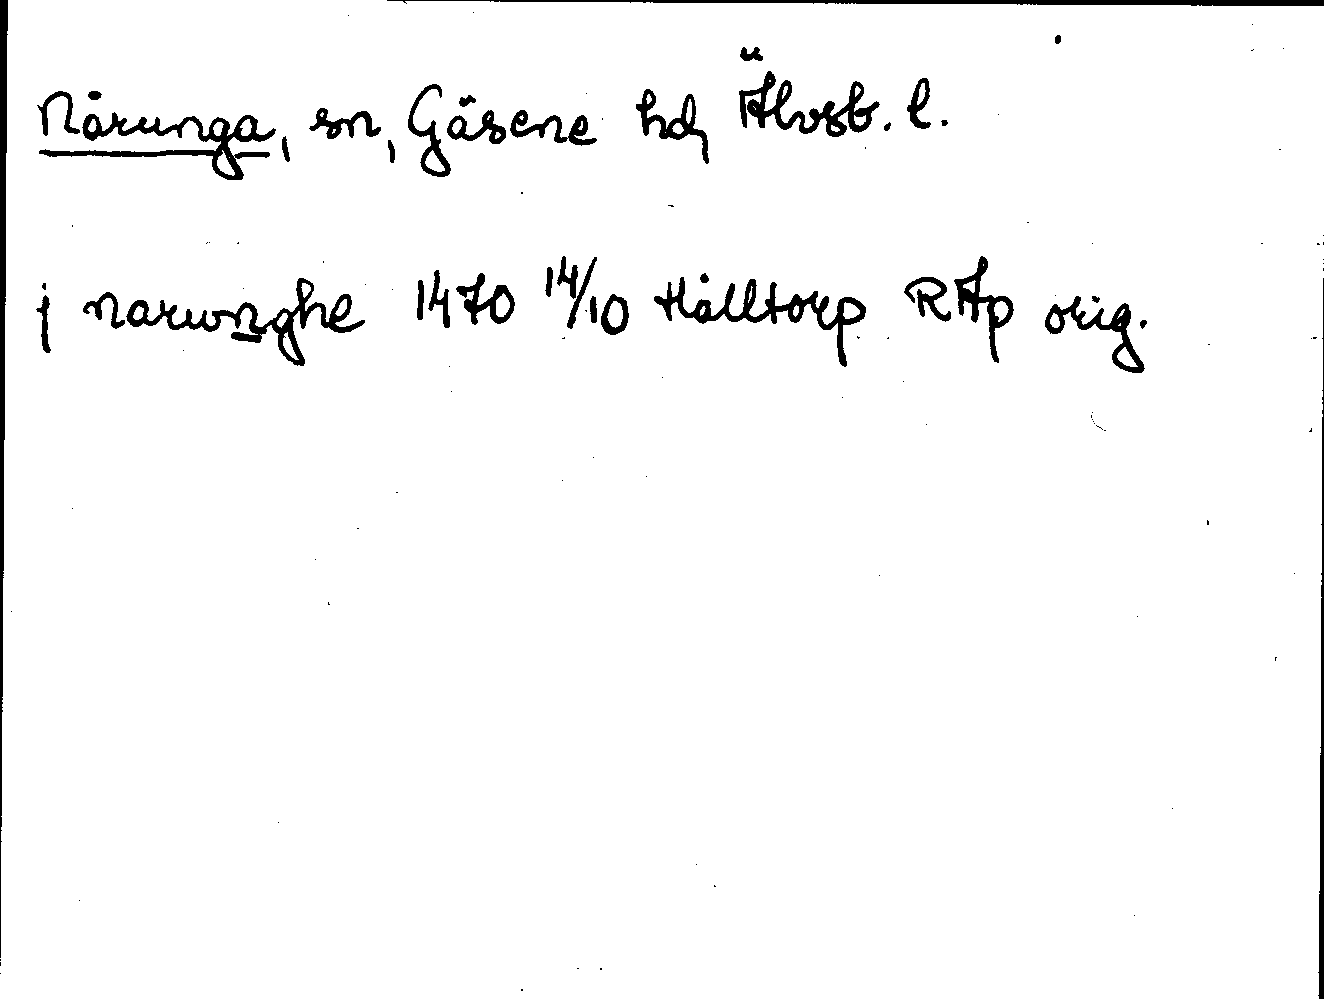 Nårunga, sn, Gäsene hd, Älvsb. l.
j narwnghe 1470 14/10 Hålltorp RAp orig.